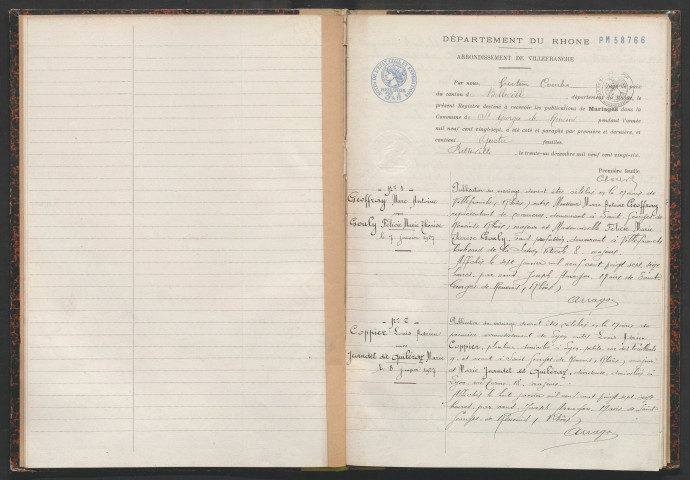 DÉPARTEMENT DU RHONE PM58766
ARRONDISSEMENT DE VILLEFRANCHE
Par nous,
du canton de Belleville, département du Rhône, le
présent Registre destiné à recevoir les publications de Mariages dans la
Commune de St Georges de Reneins pendant l'année
mil neuf cent vingt-sept, a été coté et paraphé par première et dernière, et
contient quatre feuilles
Belleville, le trente-un décembre mil neuf cent vingt-six.
Première feuille
N° 1
Geoffray Marc Antoine
Gouly Félicie Marie Thérèse
le 7 janvier 1927
Publication du mariage devant être célébré en la mairie de
Villefranche, (Rhône), entre Monsieur Marc Antoine Geoffray
représentant de commerce, demeurant à Saint Georges de
Reneins (Rhône), majeur et Mademoiselle Félicie Marie
Thérèse Gouly, sans profession, demeurant à Villefranche
majeure.
Affiché le sept janvier mil neuf cent vingt sept, dix
heures, par nous, Joseph Aragon, Maire de Saint
Georges de Reneins, (Rhône)
Aragon
N° 2
Coppier Louis
Jeandet dit Quiléroz Marie
le 8 janvier 1927
Publication du mariage devant être célébré en la mairie du
premier arrondissement de Lyon entre Louis
Coppier, domicilié à Lyon, petite rue des Feuillants
9, et avant à Saint Georges de Reneins, (Rhône), majeur
et Marie Jeandet dit Quiléroz, domiciliée à
Lyon, majeure.
Affiché le huit janvier mil neuf cent vingt sept, sept
heures, par nous, Joseph Aragon, Maire de Saint
Georges de Reneins, (Rhône)
Aragon